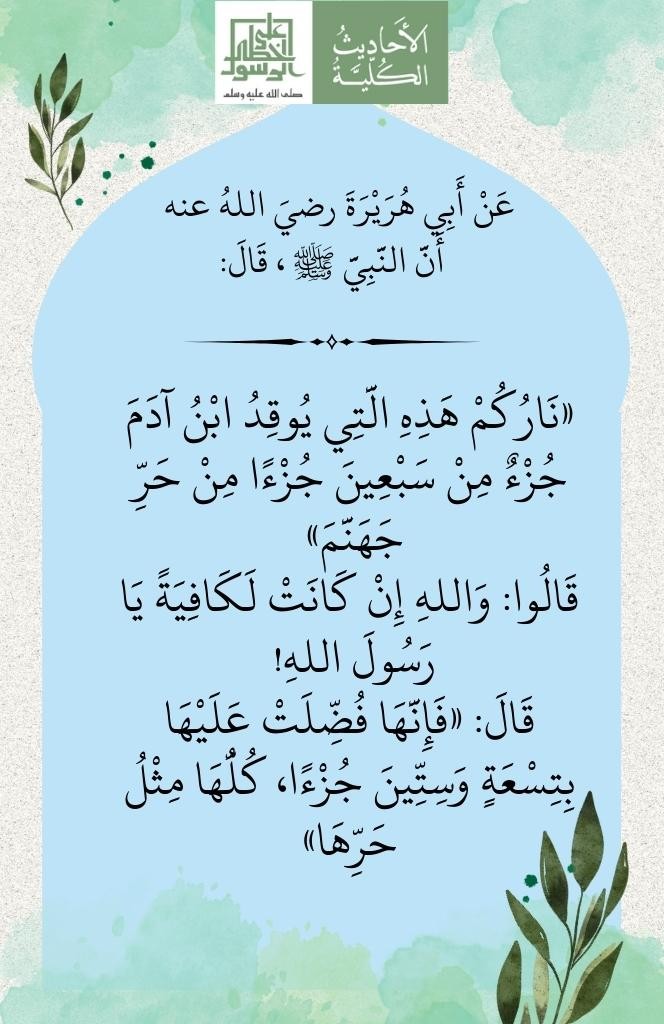 الأَحَادِيثُ
الكُلِّيَّةُ
على
خطى
الرسول
صلى الله عليه وسلم
عَنْ أَبِي هُرَيْرَةَ رضيَ اللهُ عنه
أَنّ النّبِيّ ﷺ ، قَالَ:
«نَارُكُمْ هَذِهِ الّتِي يُوقِدُ ابْنُ آدَمَ
جُزْءٌ مِنْ سَبْعِينَ جُزْءًا مِنْ حَرِّ
جَهَنّمَ»
قَالُوا: وَاللهِ إِنْ كَانَتْ لَكَافِيَةً يَا
رَسُولَ اللهِ!
قَالَ: «فَإِنّهَا فُضِّلَتْ عَلَيْهَا
بِتِسْعَةٍ وَسِتِّينَ جُزْءًا، كُلُّهَا مِثْلُ
حَرِّهَا»